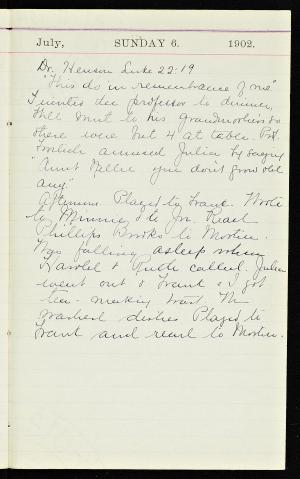 July, SUNDAY 6. 1902.
Dr. Henson Luke 22:19
"This do in remembrance of me"
I invited dee professor to dinner,
Hill went to his Grandmothers so
there were but 4 at table. Prof.
amused Julia by saying
"Aunt Nellie you don't grow old
any"
Afternoon Played to Grant. Wrote
to Minnie & to Jno. Read
Phillips Brooks to Mortie.
Was falling asleep when
Harold & Ruth called. Julia
went out & Grant & I got
tea - making toast. We
washed dishes Played to
Grant and read to Mortie.